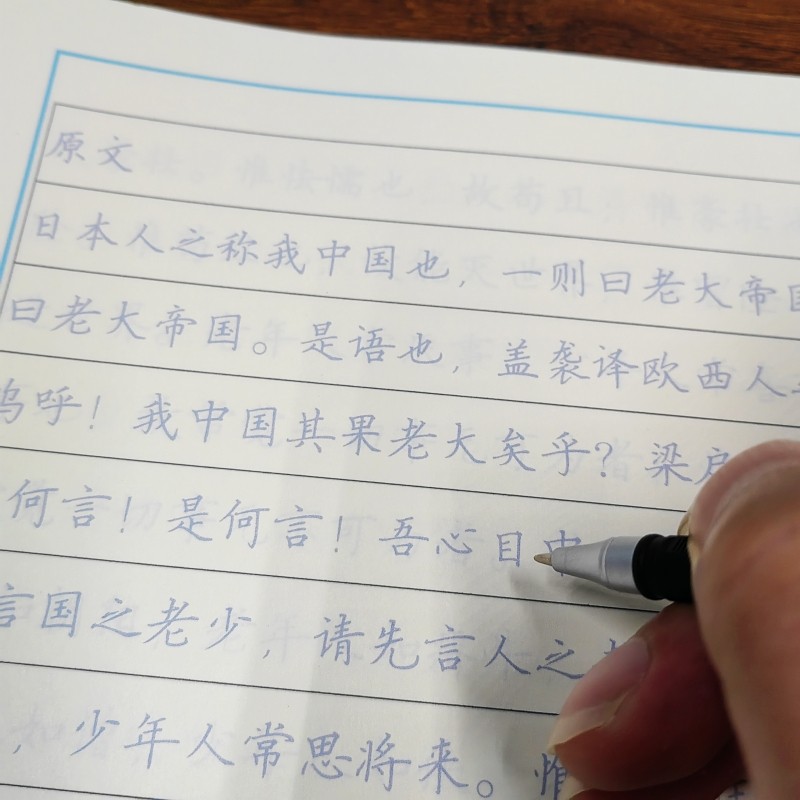 原文
日本人之称我中国也，一则曰老大帝国
曰老大帝国。是语也，盖袭译欧西人
呜呼！我中国其果老大矣乎？梁启
何言！是何言！吾心目中
言国之老少，请先言人之
，少年人常思将来。惟